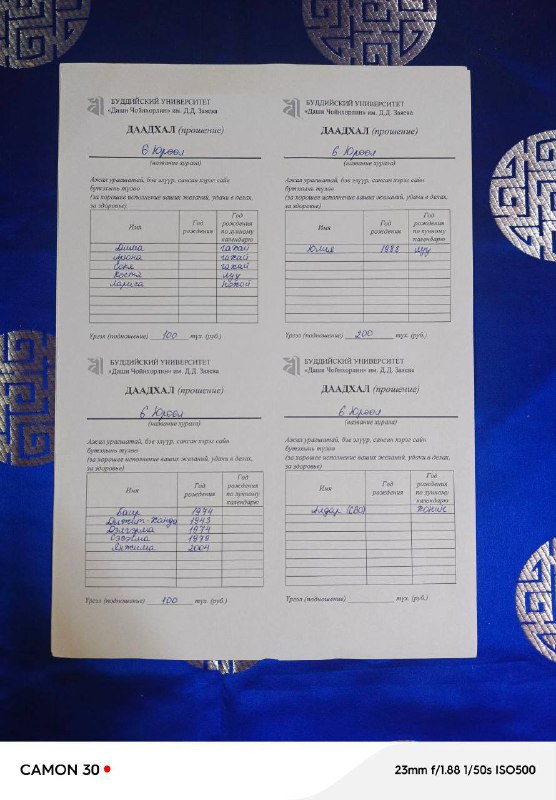 БУДДИЙСКИЙ УНИВЕРСИТЕТ
«Даши Чойнхорлин» им. Д.Д. Заяева
ДААДХАЛ (прошение)
6 Юрөөл
(название хурала)
Ажал урагшатай, бэе элүүр, сансан хэрэг сайн
бүтэхын түлөө
(за хорошее исполнение ваших желаний, удачи в делах,
за здоровье)
Имя Год рождения Год рождения по лунному календарю
Дима гахай
Арюна гахай
Соня гахай
Костя луу
Лариса нохой
Үргэл (подношение) 100 түх. (руб.)
БУДДИЙСКИЙ УНИВЕРСИТЕТ
«Даши Чойнхорлин» им. Д.Д. Заяева
ДААДХАЛ (прошение)
6 Юрөөл
(название хурала)
Ажал урагшатай, бэе элүүр, сансан хэрэг сайн
бүтэхын түлөө
(за хорошее исполнение ваших желаний, удачи в делах,
за здоровье)
Имя Год рождения Год рождения по лунному календарю
Юлия 1988 луу
Үргэл (подношение) 200 түх. (руб.)
БУДДИЙСКИЙ УНИВЕРСИТЕТ
«Даши Чойнхорлин» им. Д.Д. Заяева
ДААДХАЛ (прошение)
6 Юрөөл
(название хурала)
Ажал урагшатай, бэе элүүр, сансан хэрэг сайн
бүтэхын түлөө
(за хорошее исполнение ваших желаний, удачи в делах,
за здоровье)
Имя Год рождения Год рождения по лунному календарю
Баир 1974
Дыжит-Ханда 1943
Дэлгэрма 1974
Сэсэгма 1978
Янжима 2004
Үргэл (подношение) 100 түх. (руб.)
БУДДИЙСКИЙ УНИВЕРСИТЕТ
«Даши Чойнхорлин» им. Д.Д. Заяева
ДААДХАЛ (прошение)
6 Юрөөл
(название хурала)
Ажал урагшатай, бэе элүүр, сансан хэрэг сайн
бүтэхын түлөө
(за хорошее исполнение ваших желаний, удачи в делах,
за здоровье)
Имя Год рождения Год рождения по лунному календарю
Алдар (СВО) хонин
Үргэл (подношение) түх. (руб.)
CAMON 30 23mm f/1.88 1/50s ISO500